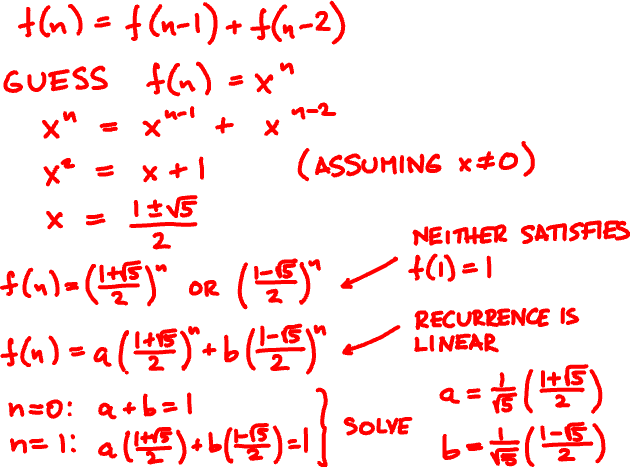 f(n) = f(n-1) + f(n-2)
GUESS f(n) = x^n
x^n = x^{n-1} + x^{n-2}
x^2 = x + 1 (ASSUMING x≠0)
x = \frac{1±√5}{2}
NEITHER SATISFIES
f(1) = 1
f(n) = (\frac{1+√5}{2})^n OR (\frac{1-√5}{2})^n
RECURRENCE IS
LINEAR
f(n) = a(\frac{1+√5}{2})^n + b(\frac{1-√5}{2})^n
n=0: a+b=1
n=1: a(\frac{1+√5}{2})+b(\frac{1-√5}{2})=1
SOLVE
a = \frac{1}{√5}(\frac{1+√5}{2})
b = \frac{1}{√5}(\frac{1-√5}{2})